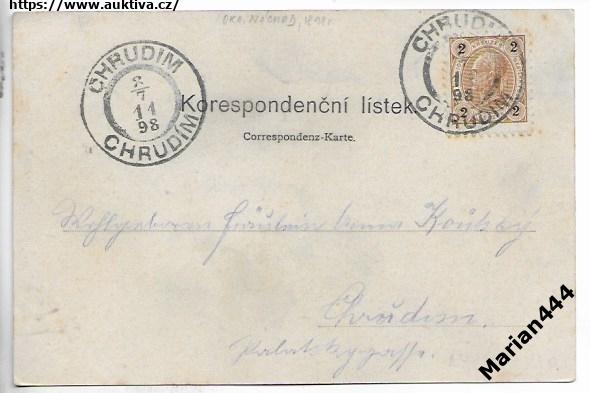 https://www.auktiva.cz/
OKR. NÁCHOD, 1898
CHRUDIM
8/7
11
98
CHRUDÍM
CHRUDIM
11
98
CHRUDÍM
2 2
2 2
Korespondenční lístek.
Correspondenz-Karte.
Wohlgeboren Fräulein Anna Koutský
Chrudim.
Palatskygasse.
Marian444